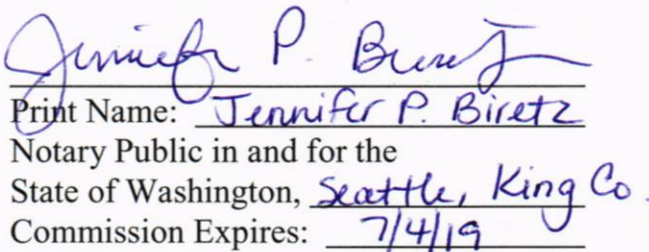 Jennifer P. Biretz
Print Name: Jennifer P. Biretz
Notary Public in and for the
State of Washington, Seattle, King Co.
Commission Expires: 7/4/19